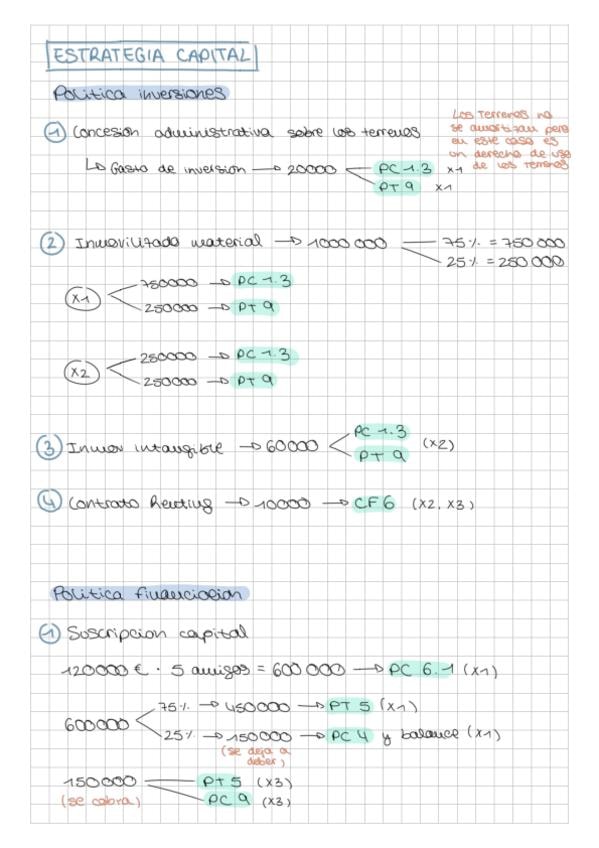 ESTRATEGIA CAPITAL
Politica inversiones
① Concesión administrativa sobre los terrenos
Los Terrenos no
se amortizan pero
en este caso es
un derecho de uso
de los terrenos
↳ Gasto de inversion → 20000 PC 1.3 X1
PT 9 X1
② Inmovilizado material → 1000 000 75% = 750 000
25% = 250 000
X1 750000 → PC 1.3
250000 → PT 9
X2 250000 → PC 1.3
250000 → PT 9
③ Inmov intangible → 60000 PC 1.3 (X2)
PT 9
④ Contrato Renting → 10000 → CF6 (X2, X3)
Politica financiacion
① Suscripcion capital
120000 € · 5 amigos = 600 000 → PC 6.1 (X1)
600000 75% → 450000 → PT 5 (X1)
25% → 150000 → PC 4 y balance (X1)
(se deja a
deber)
150000 PT 5 (X3)
(se cobra) PC 9 (X3)